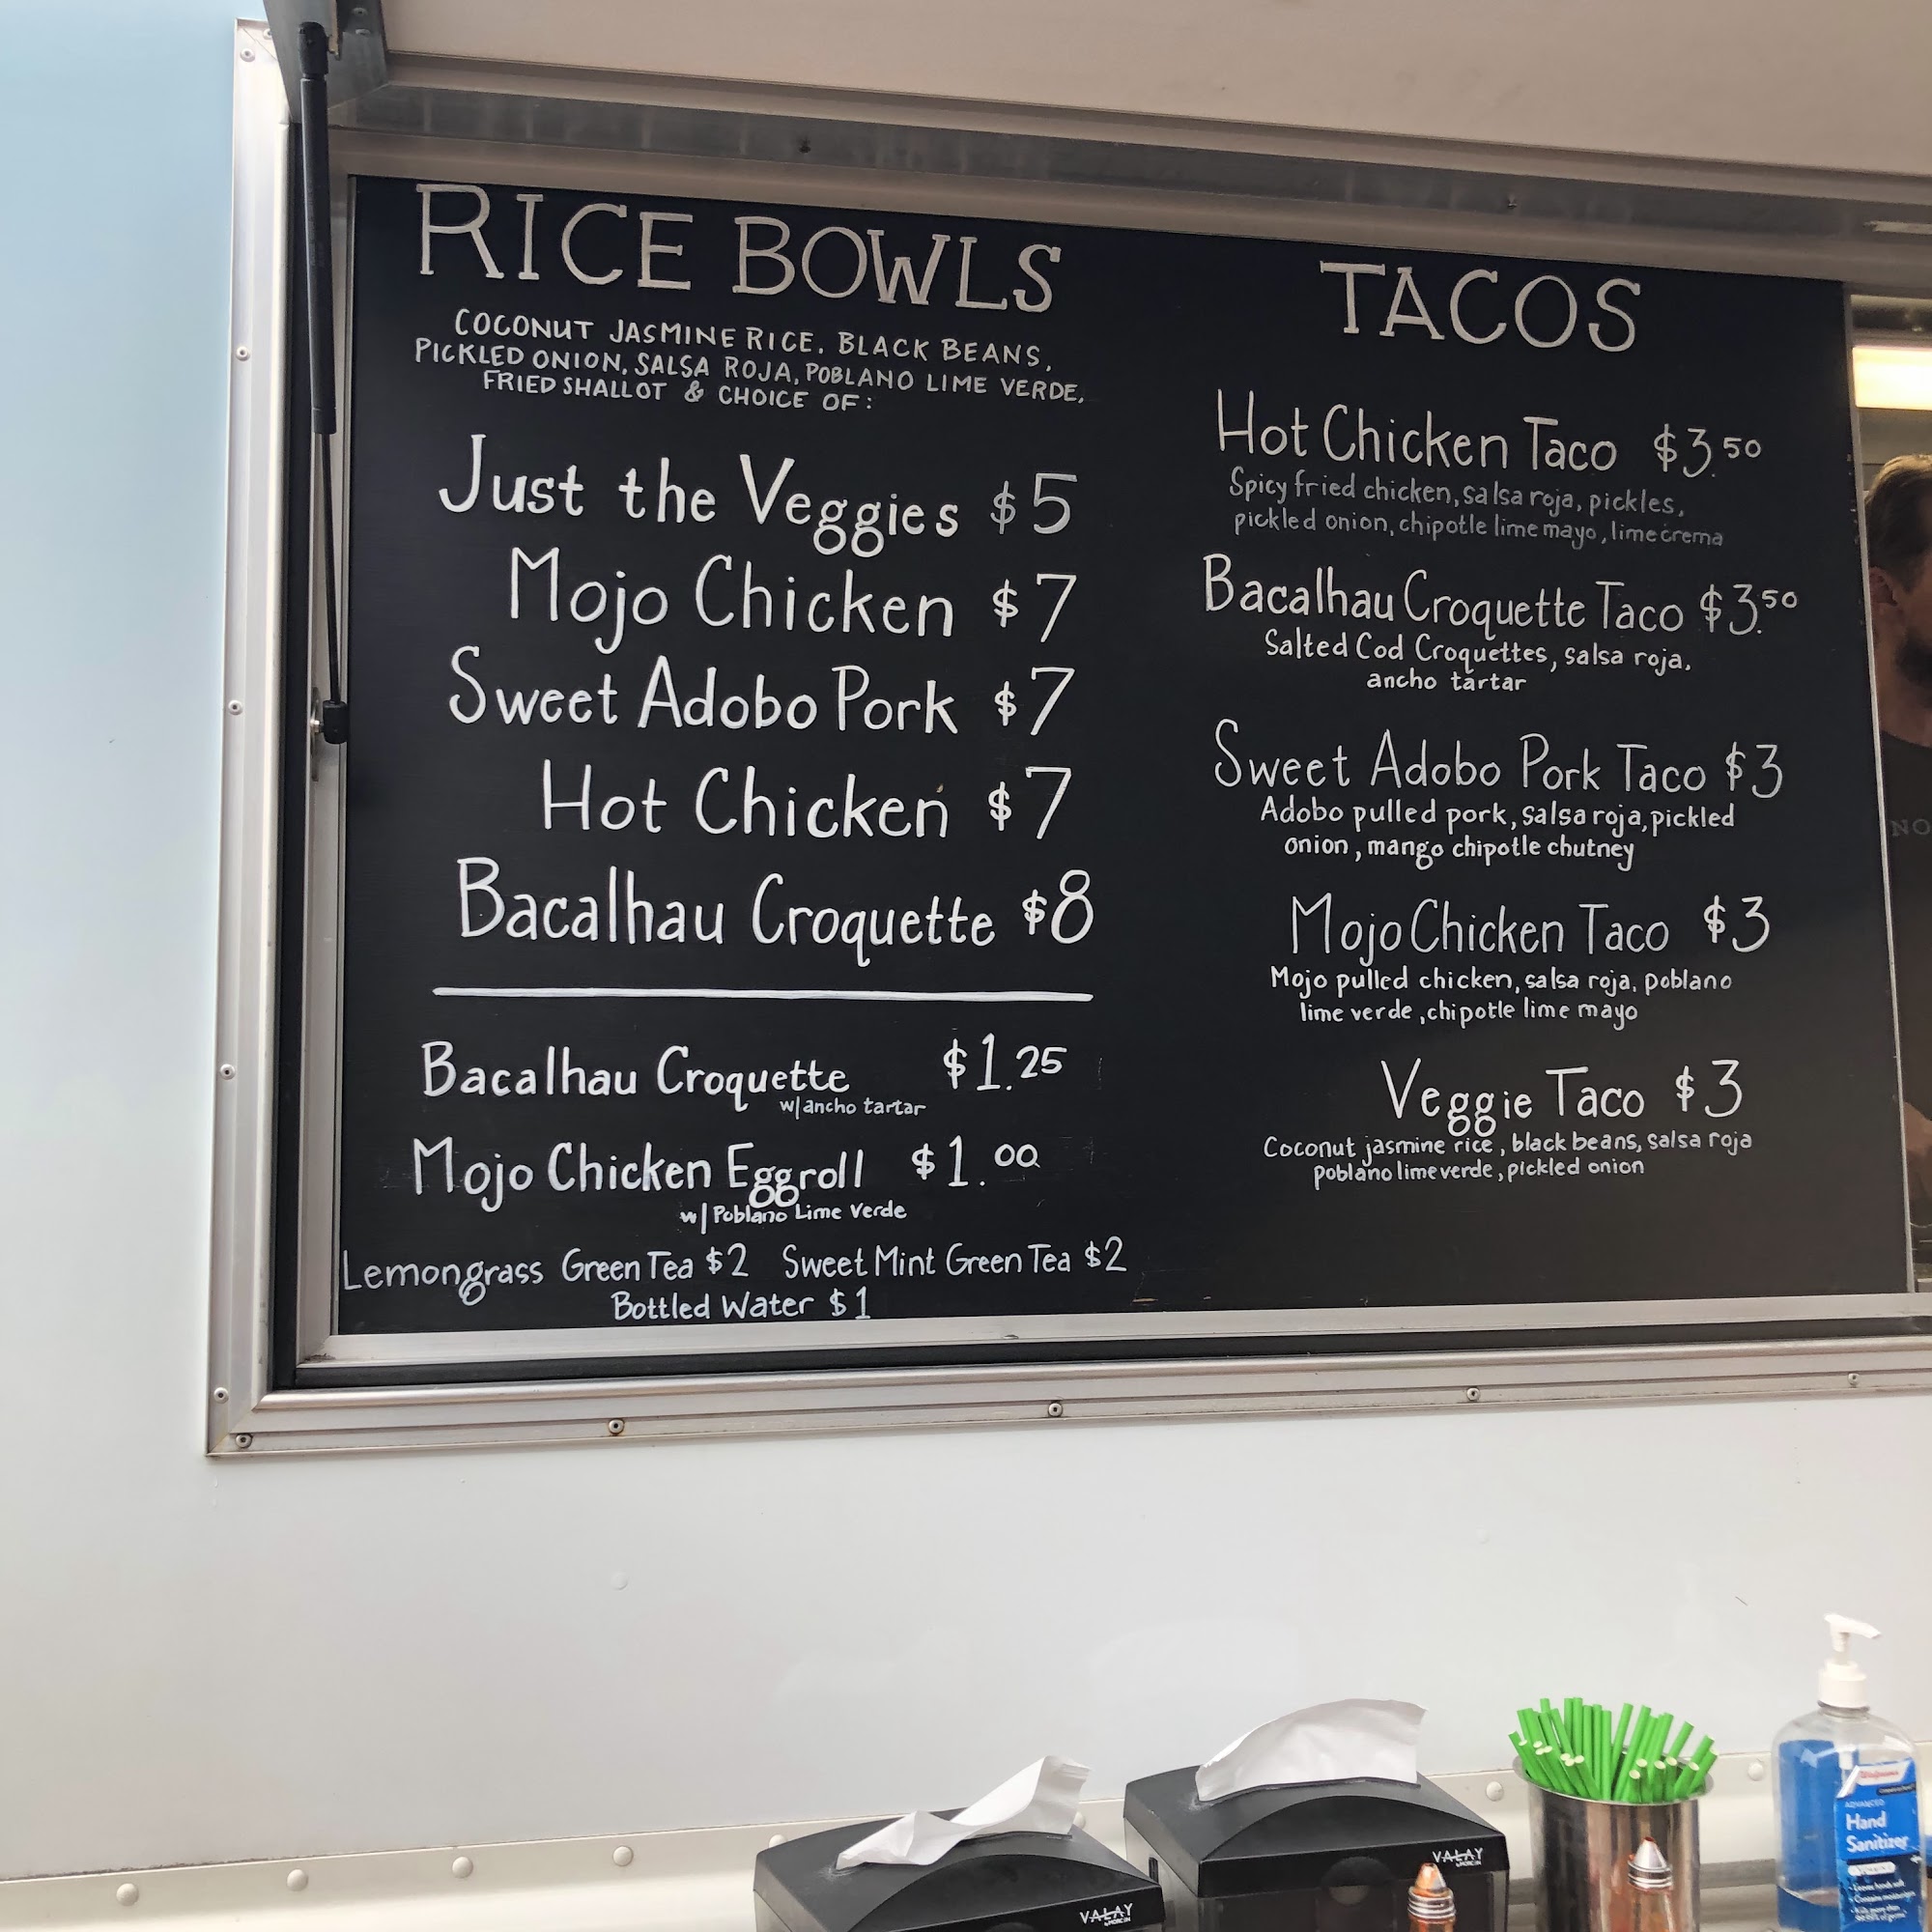 RICE BOWLS
COCONUT JASMINE RICE, BLACK BEANS,
PICKLED ONION, SALSA ROJA, POBLANO LIME VERDE,
FRIED SHALLOT & CHOICE OF:
Just the Veggies $5
Mojo Chicken $7
Sweet Adobo Pork $7
Hot Chicken $7
Bacalhau Croquette $8
Bacalhau Croquette $1.25
w/ancho tartar
Mojo Chicken Eggroll $1.00
w/ Poblano Lime Verde
Lemongrass Green Tea $2 Sweet Mint Green Tea $2
Bottled Water $1
TACOS
Hot Chicken Taco $3.50
Spicy fried chicken, salsa roja, pickles,
pickled onion, chipotle lime mayo, lime crema
Bacalhau Croquette Taco $3.50
Salted Cod Croquettes, salsa roja,
ancho tartar
Sweet Adobo Pork Taco $3
Adobo pulled pork, salsa roja, pickled
onion, mango chipotle chutney
Mojo Chicken Taco $3
Mojo pulled chicken, salsa roja, poblano
lime verde, chipotle lime mayo
Veggie Taco $3
Coconut jasmine rice, black beans, salsa roja
poblano lime verde, pickled onion
NO
VALAY
VALAY
Walgreens
ADVANCED
Hand
Sanitizer